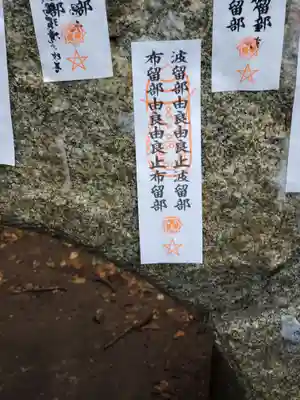 波留部由良由良止波留部
布留部由良由良止布留部
留部
部